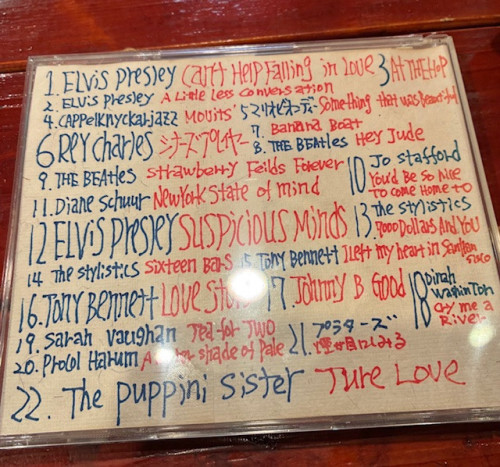 1. ELVIS PRESLEY Can't Help Falling in Love 3 AT THE HOP
2. ELVIS PRESLEY A Little Less Conversation
4. CAPPELKNYCKARJAZZ MOUITS' 5 マリオビオンディ Something that was Beautiful
6 Rey Charles シナーズ プレイヤー 7. Banana Boat
8. THE BEATLES Hey Jude
9. THE BEAtles Strawberry Feilds Forever
10 Jo Stafford You'd Be So Nice To come Home to
11. Diane Schuur New York State of mind
12 ELVIS PRESLEY SUSPICIOUS MINDS 13 The stylistics 1000 Dollars And YOU
14 The stylistics Sixteen Bars 15 Tony Bennett I left my heart in San
16. Tony Bennett LOVE 17 Johnny B Good
18 Dinah Washinton Cry me a River
19. Sarah Vaughan Tea for TWO
20. Procol Harum A shade of Pale 21. プラターズ 煙が目にしみる
22. The puppini sister Ture LOVE